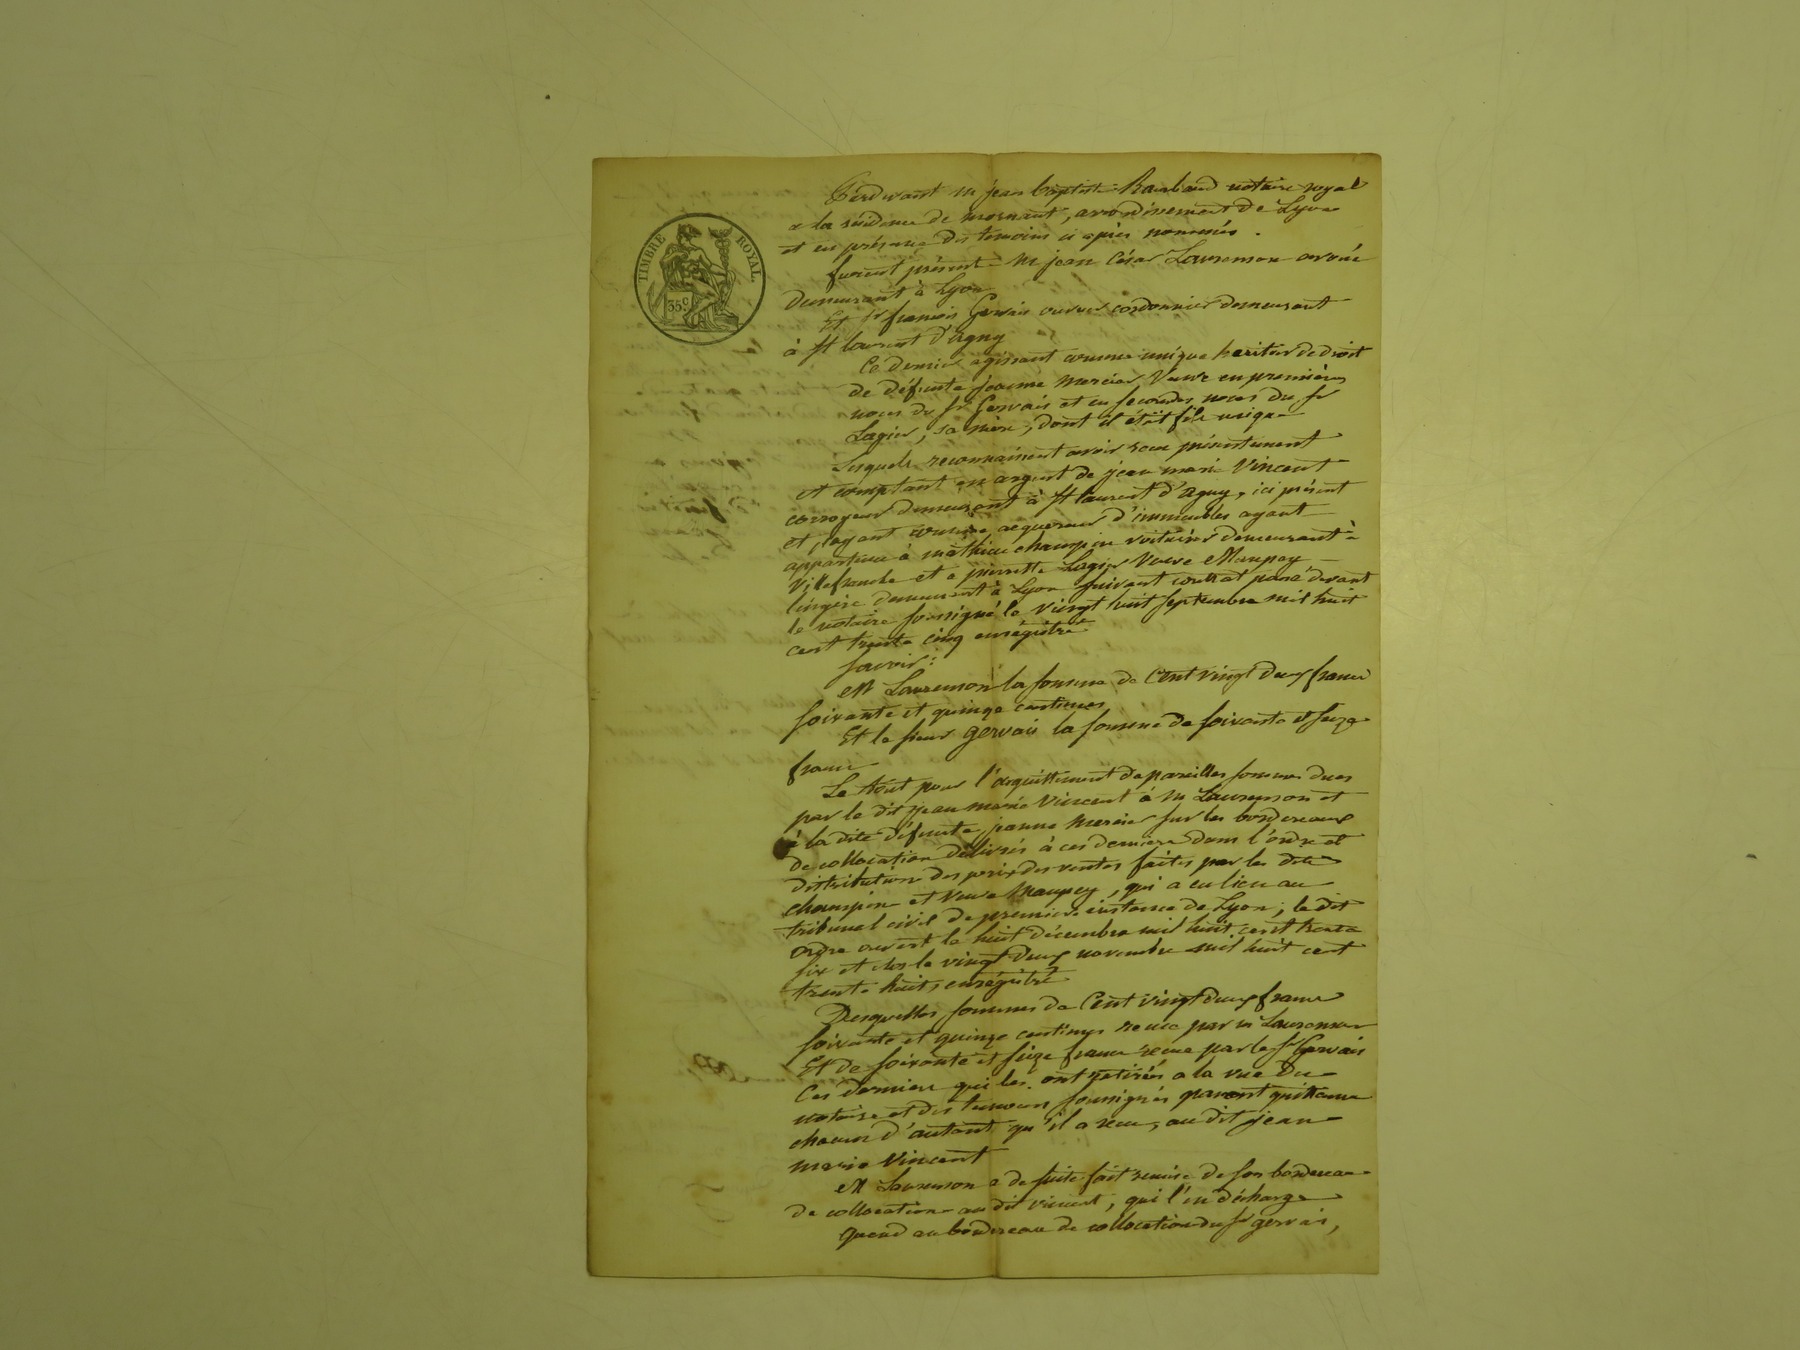 TIMBRE ROYAL
35c
Pardevant m jean baptiste Raimbaud notaire royal
a la residence de mornant, arrondissement de Lyon
et en présence des temoins ci après nommés.
furent présents M jean César Laurenson avoué
demeurant à Lyon
Et sr francois Gervais ouvrier cordonnier demeurant
à St laurent d'agny
Ce dernier agissant comme unique heritier de droit
de défunte jeanne mercier Veuve en premières
noces du sr Gervais et en secondes noces du sr
Lagier, sa mère, dont il était fils unique
Lesquels reconnaissent avoir recu présentement
et comptant en argent de jean marie Vincent
corroyeur demeurant à St laurent d'agny, ici présent
et, ayant comme acquereur d'immeubles ayant
appartenu à mathieu champion voiturier demeurant à
Villefranche et a pierrette Lagier Veuve Maupey
lingère demeurant à Lyon suivant contrat passé devant
le notaire soussigné le vingt huit septembre mil huit
cent trente cinq enrégistré
savoir:
M Laurenson la somme de Cent vingt deux francs
soixante et quinze centimes
Et le sieur gervais la somme de soixante et seize
francs
Le tout pour l'acquittement de pareilles sommes dues
par le dit jean marie Vincent à M Laurenson et
à la dite défunte jeanne mercier sur les bordereaux
de collocation délivrés à ces derniers dans l'ordre et
distribution des prix des ventes faites par les dits
champion et Veuve Maupey, qui a eu lieu au
tribunal civil de première instance de Lyon; le dit
ordre ouvert le huit décembre mil huit cent trente
six et clos le vingt deux novembre mil huit cent
trente huit, enrégistré
Desquelles sommes de Cent vingt deux francs
soixante et quinze centimes recue par m Laurenson
Et de soixante et seize francs recue par le sr Gervais
Ces derniers qui les ont retirés a la vue du
notaire et des temoins soussignés passent quittance
chacun d'autant qu'il a recu, au dit jean
marie Vincent
M Laurenson a de suite fait remise de son bordereau
de collocation au dit vincent, qui l'en décharge
quand au bordereau de collocation du sr gervais,